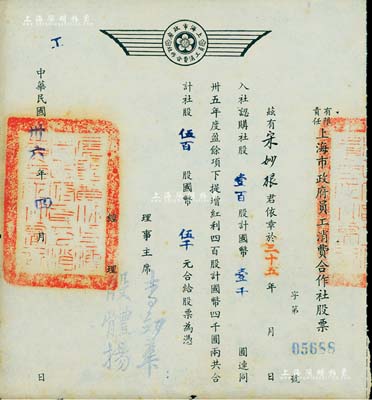 上海市政府
員工消費合作社
有限
責任
上海市政府員工消費合作社股票
字第 05688 號
茲有宋妙根君依章於三十五年 月 日
入社認購社股壹百股計國幣壹千圓連同
卅五年度盈餘項下提增紅利四百股計國幣四千圓兩共合
計社股伍百股國幣伍千元合給股票為憑
理事主席
經理
中華民國卅六年四月 日